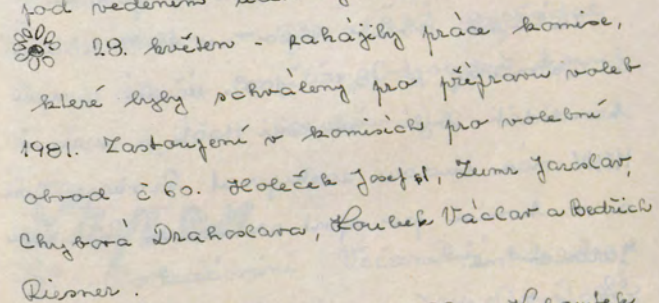 pod vedením
29. květen - zahájily práce komise,
které byly schváleny pro přípravu voleb
1981. Zastoupení v komisích pro volební
obvod č 60. Holeček Josef st, Zumr Jaroslav,
Chybová Drahoslava, Loubek Václav a Bedřich
Riesner.